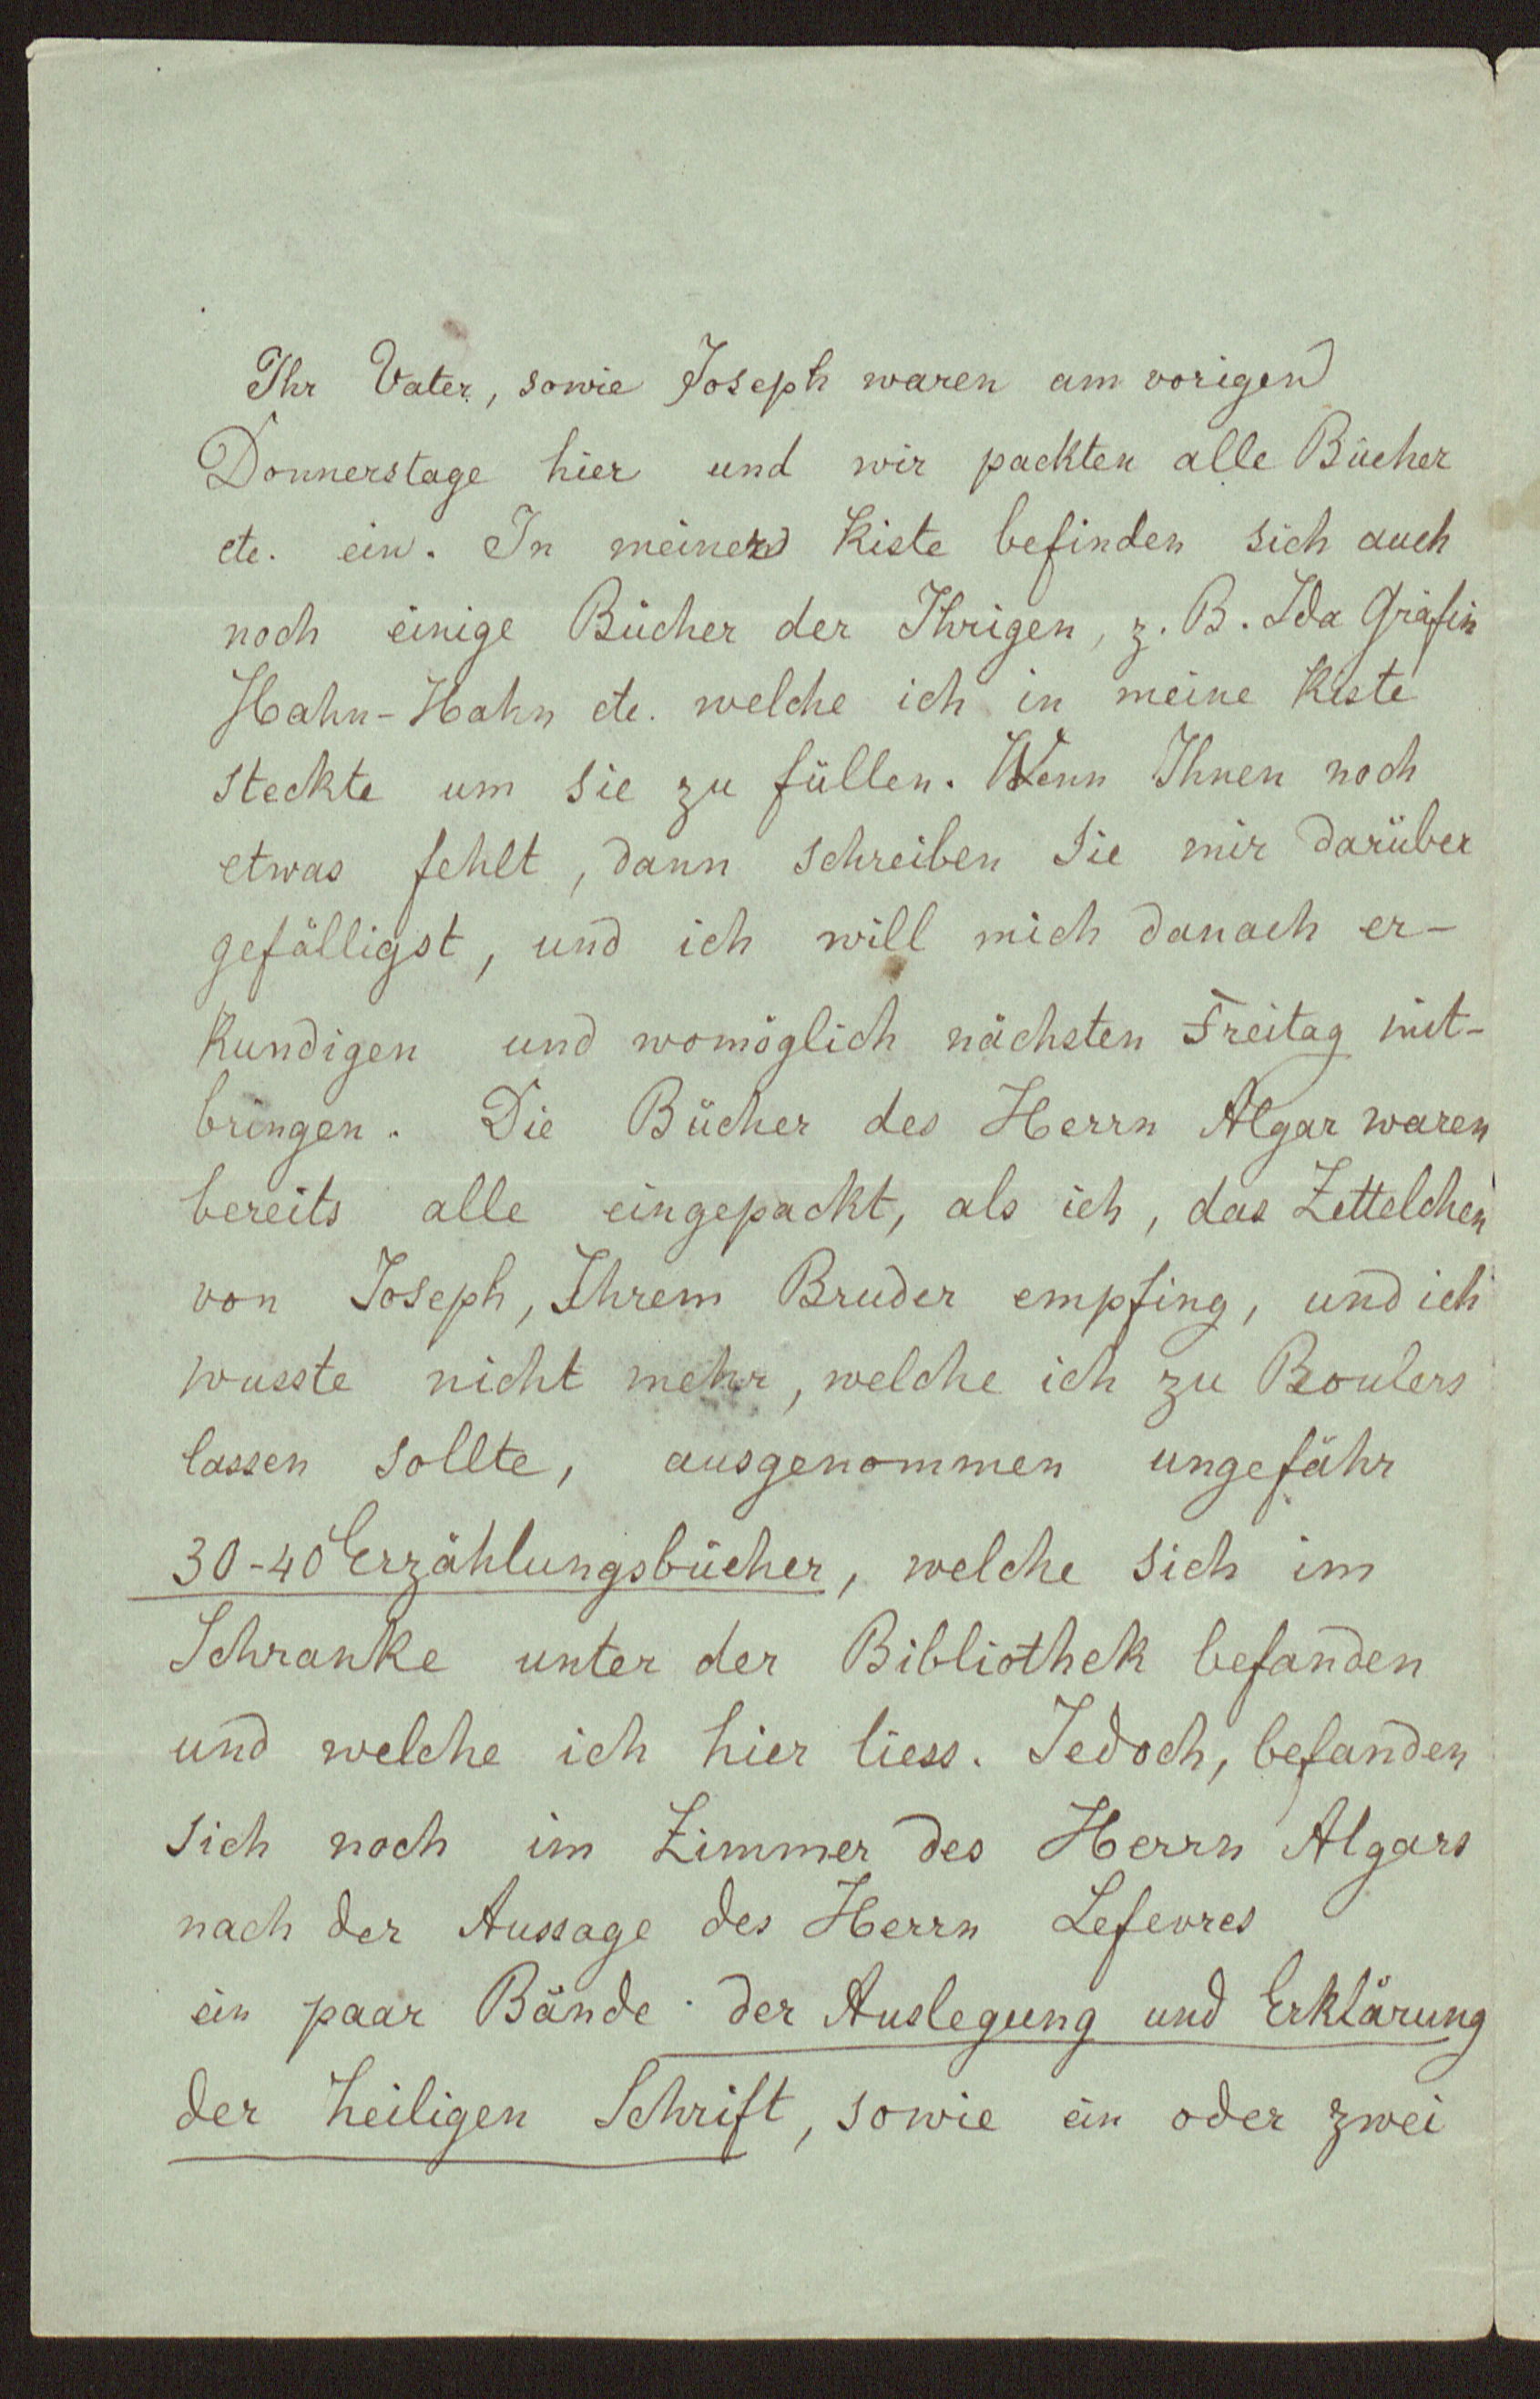 Ihr Vater, sowie Joseph waren am vorigen
Donnerstage hier und wir packten alle Bücher
etc. ein. In meiner Kiste befinden sich auch
noch einige Bücher der Ihrigen, z. B. Ida Gräfin
Hahn-Hahn etc. welche ich in meine Kiste
steckte um sie zu füllen. Wenn Ihnen noch
etwas fehlt, dann schreiben Sie mir darüber
gefälligst, und ich will mich danach er-
kundigen und womöglich nächsten Freitag mit-
bringen. Die Bücher des Herrn Algar waren
bereits alle eingepackt, als ich, das Zettelchen
von Joseph, Ihrem Bruder empfing, und ich
wusste nicht mehr, welche ich zu Roulers
lassen sollte, ausgenommen ungefähr
30-40 Erzählungsbücher, welche sich im
Schranke unter der Bibliothek befanden
und welche ich hier liess. Jedoch, befanden
sich noch im Zimmer des Herrn Algars
nach der Aussage des Herrn Lefevres
ein paar Bände der Auslegung und Erklärung
der heiligen Schrift, sowie ein oder zwei